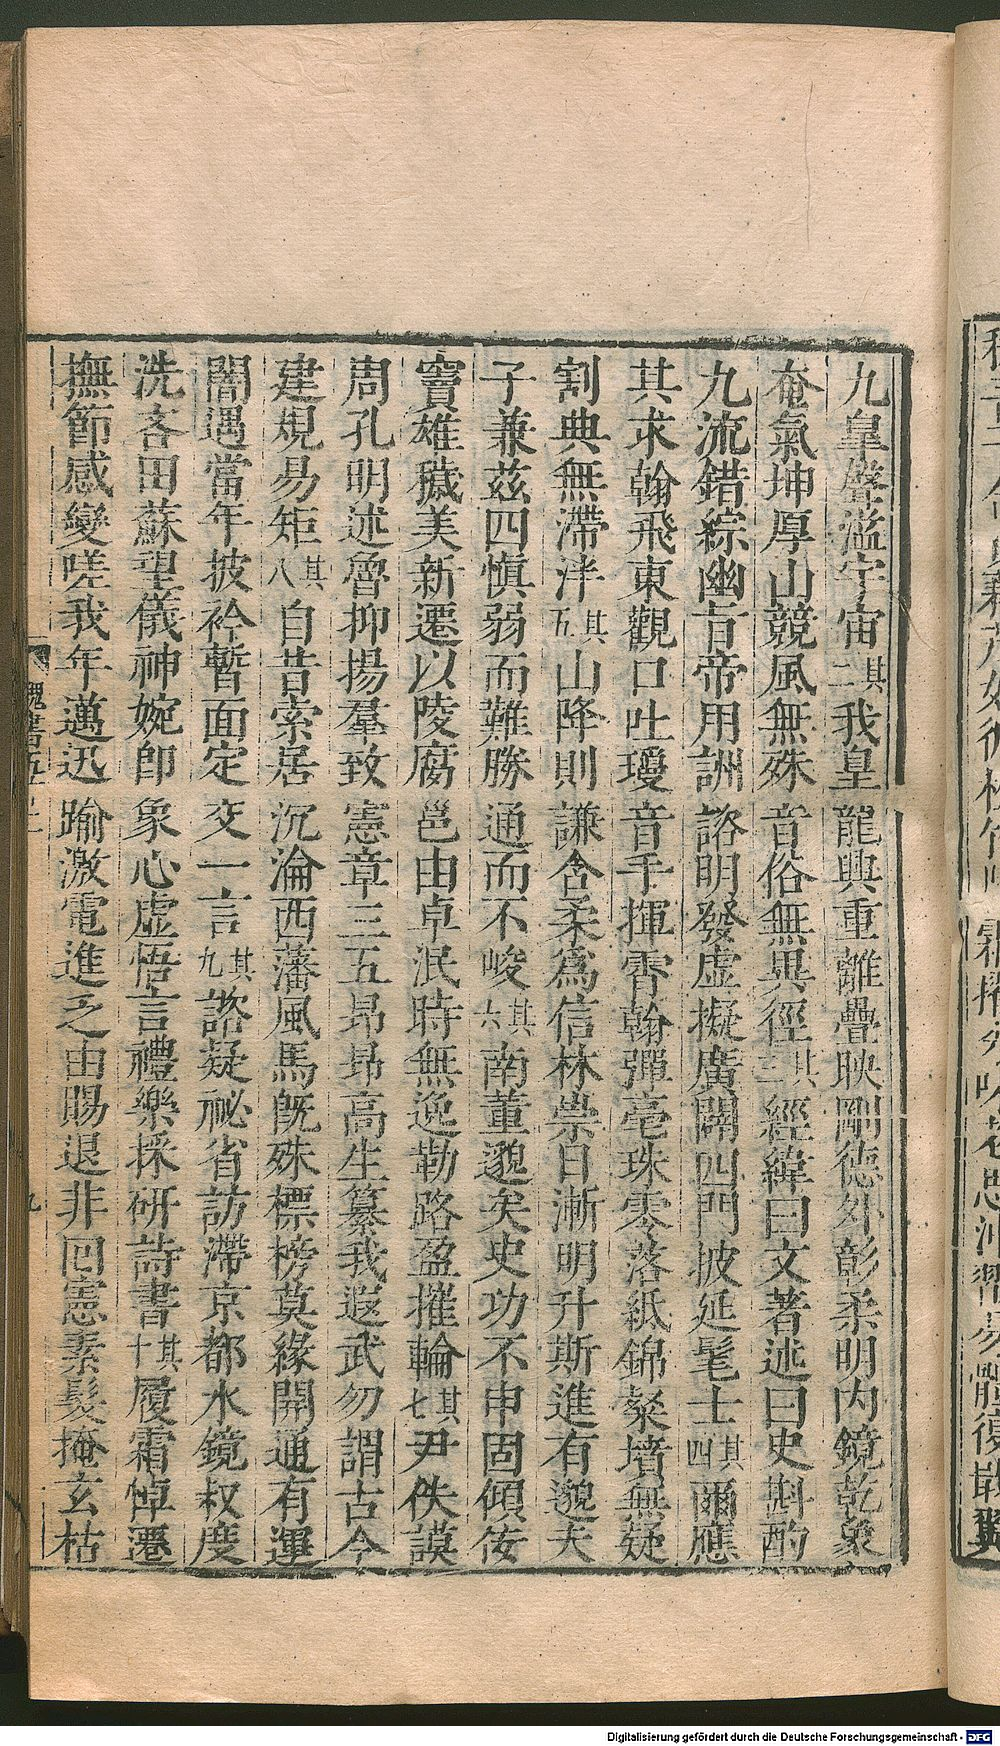 九皇聲溢宇宙其二我皇龍興重離疊映剛德外彰柔明內鏡乾象
奄氣坤厚山競風無殊音俗無異徑其三經緯曰文著述曰史斟酌
九流錯綜幽旨帝用詶諮明發虛擬廣闢四門披延髦士其四爾應
其求翰飛東觀口吐瓊音手揮霄翰彈毫珠零落紙錦粲墳無疑
割典無滯泮其五山降則謙含柔爲信林崇日漸明升斯進有邈夫
子兼茲四慎弱而難勝通而不峻其六南董邈矣史功不申固傾佞
竇雄穢美新遷以陵腐邕由卓泯時無逸勒路盈摧輪其七尹佚謨
周孔明述魯抑揚羣致憲章三五昻昻高生纂我遐武勿謂古今
建規易矩其八自昔索居沉淪西藩風馬旣殊標榜莫緣開通有運
闇遇當年披衿暫面定交一言其九諮疑祕省訪滯京都水鏡叔度
洗吝田蘇望儀神婉卽象心虛悟言禮樂採研詩書其十履霜悼遷
撫節感變嗟我年邁迅踰激電進乏由賜退非回憲素髮掩玄枯
魏書五
九
Digitalisierung gefördert durch die Deutsche Forschungsgemeinschaft - DFG